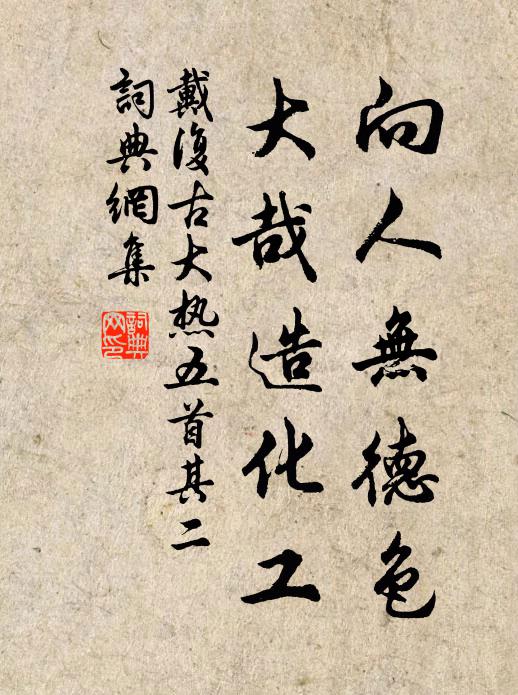 向人無德色
大哉造化工
戴復古大热五首其二
詞典網集
詞典網印